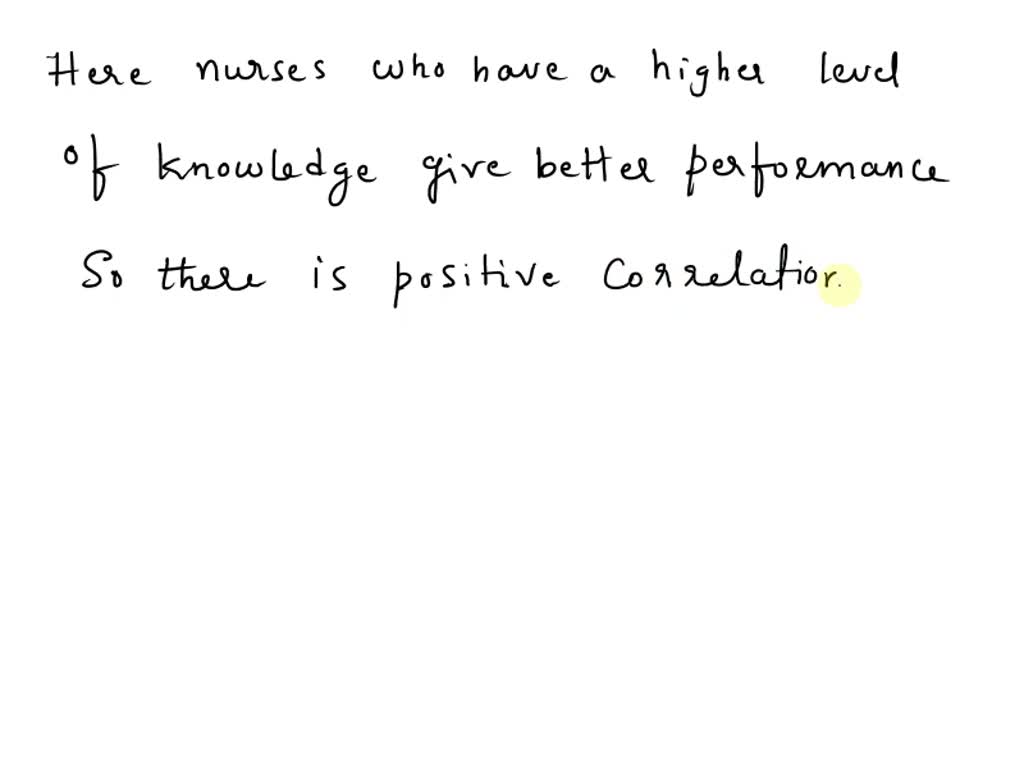 Here nurses who have a higher level
of knowledge give better performance
So there is positive Correlation